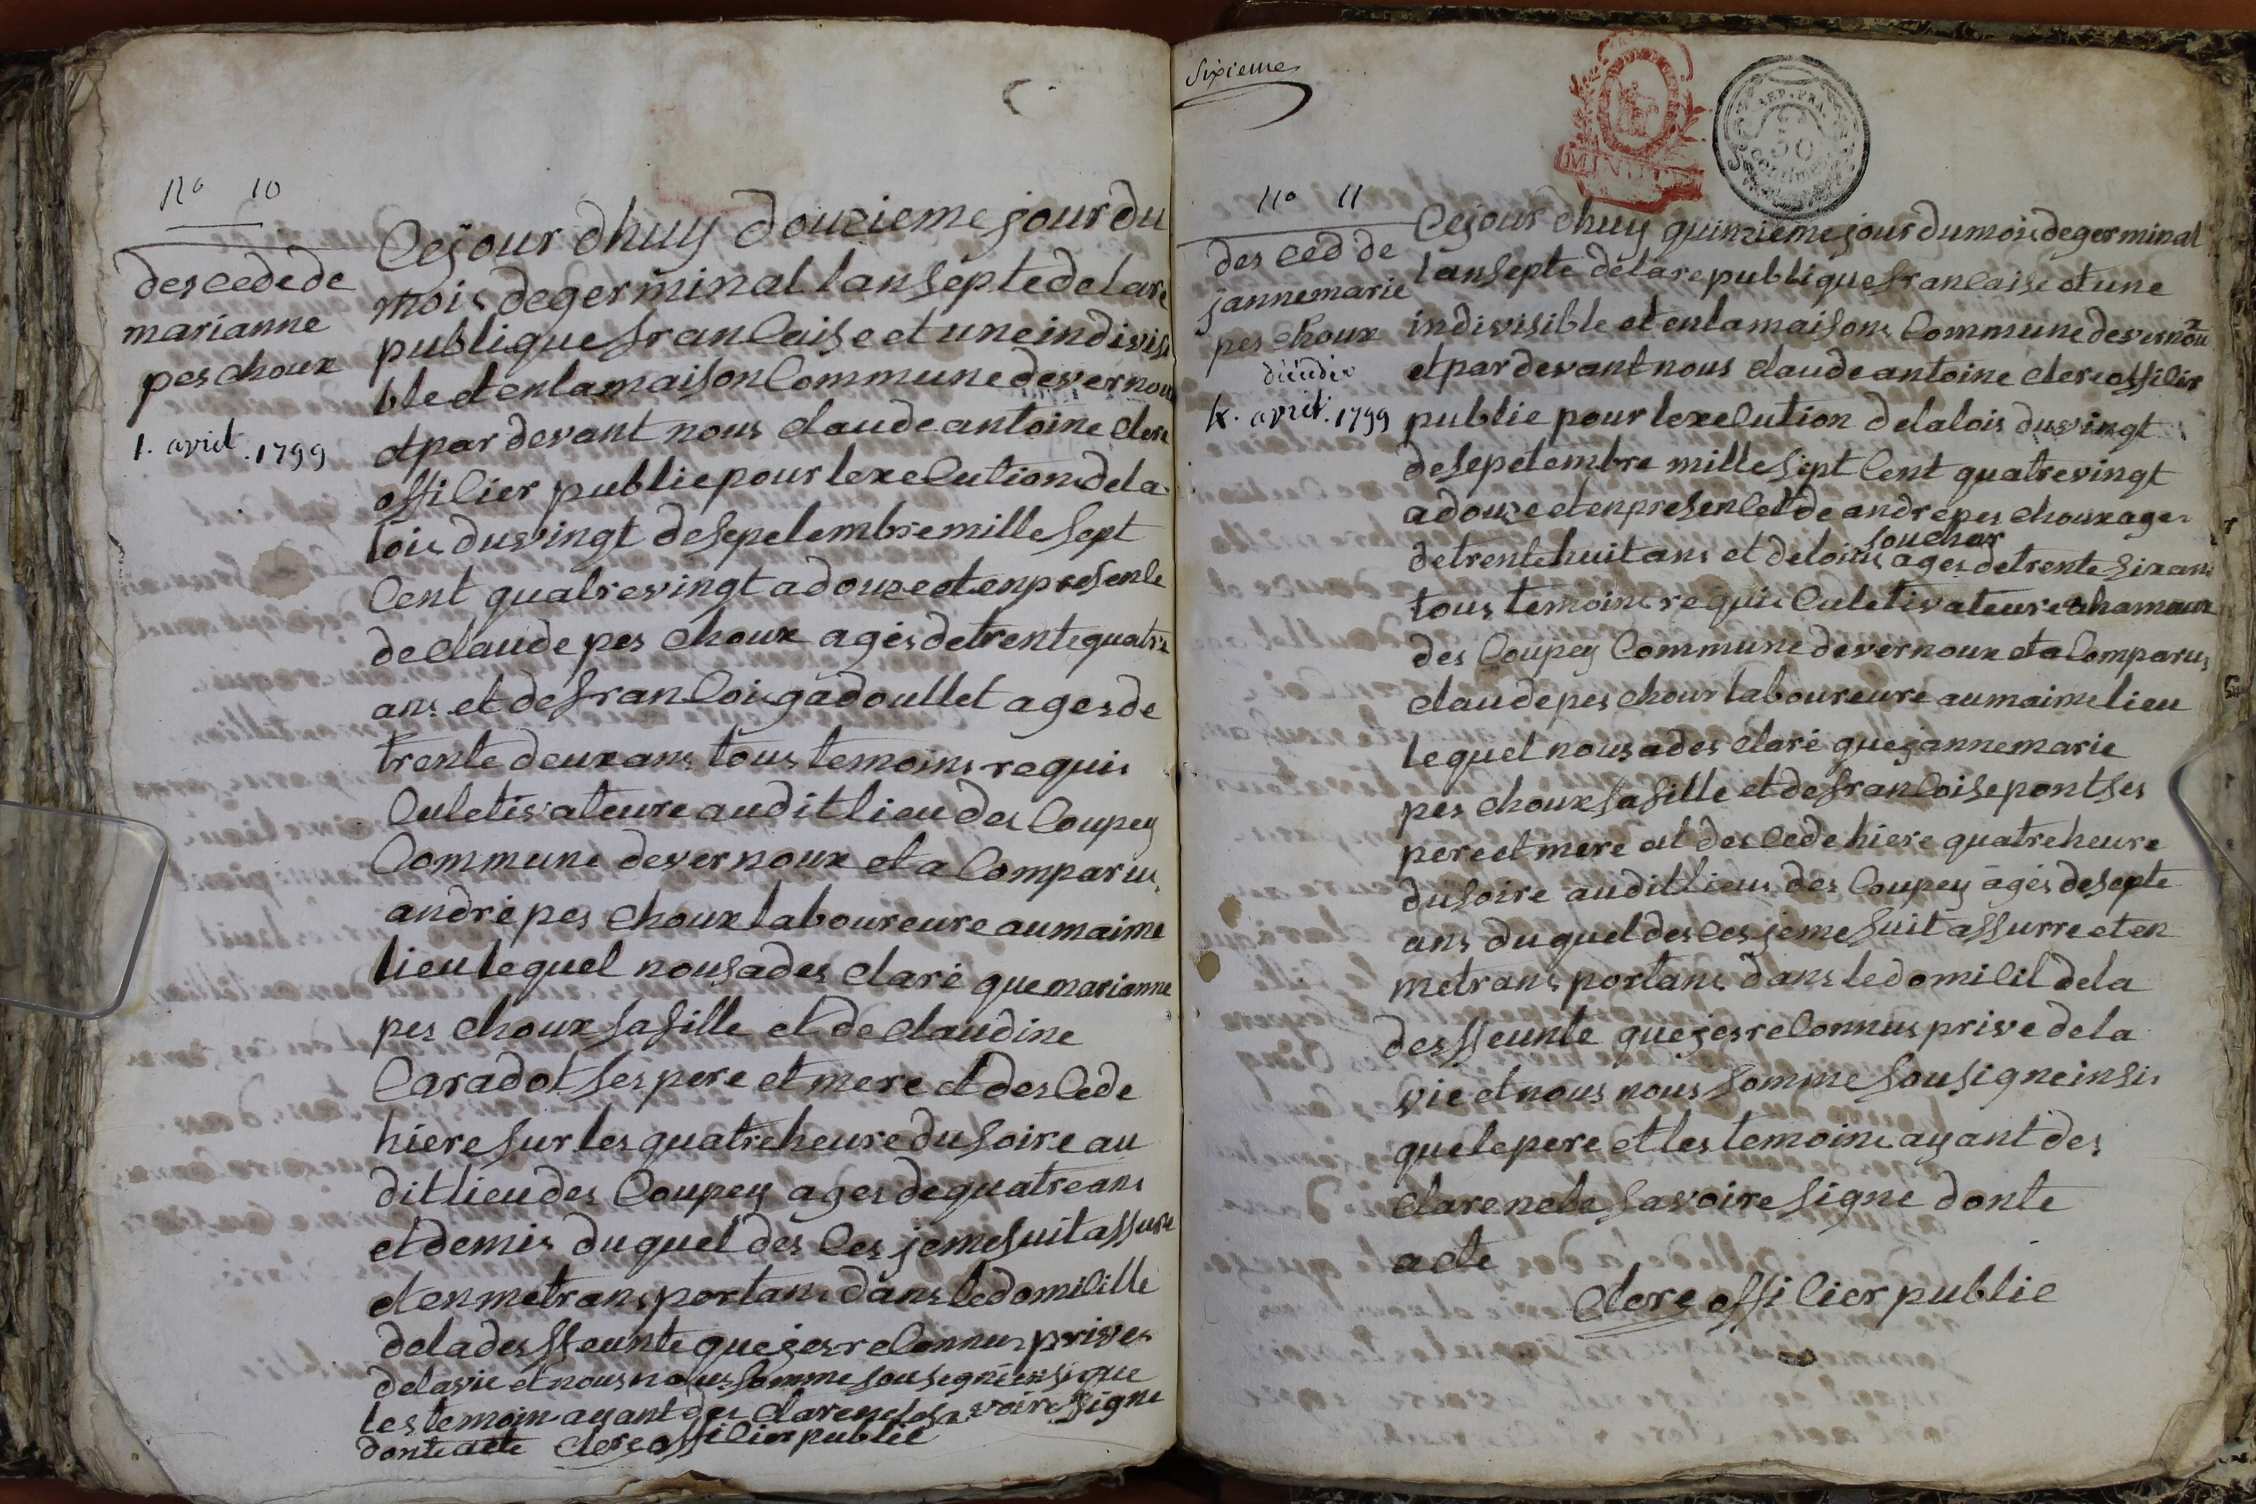 No 10
descedede
marianne
pes choux
1. avril. 1799
Cejour dhuy douzieme jour du
mois degerminal lan septe de la re
publique francaise et une indivisi
ble et en la maison Commune devernoux
et par devant nous claude antoine clerc
officier public pour lexecution dela
lois du vingt desepetembre mille sept
Cent quatre vingt a douze et en presence
de claude pes choux agés de trente quatre
ans et de francois gadoullet ages de
trente deux ans tous temoins requis
Culetivateure audit lieu des Coupey
Commune devernoux et a Comparus
andré pes choux laboureure au maime
lieu lequel nous a des claré que marianne
pes choux sa fille et de claudine
Caradot ses pere et mere et descede
hiere sur les quatre heure du soire au
dit lieu des Coupey ages de quatre ans
et demis du quel des ces je me suit assure
et en me transportans dans le domicille
de la desffeunte que jes reconnus prives
de la vie et nous nous somme sousegné insi que
les temoin ayant des clare ne le savoire signe
donte acte clerc officier public
Sixieme
MINUTE
REP. FRA.
50
Centimes
No 11
des ced de
jannemarie
pes choux
4. avril. 1799
Cejour dhuy quinzieme jour du mois degerminal
lan septe dela republique francaise et une
indivisible et en la maison Commune devernoux
et par devant nous claude antoine clerc officir
public pour lexecution dela lois du vingt
desepetembre mille sept Cent quatre vingt
a douze et en presence de andré pes choux ages
de trente huit ans et de lois souchar ages de trente six ans
tous temoins requis Culetivateure a hameaux
des Coupey Commune devernoux et a Comparus
claude pes choux laboureure au maime lieu
lequel nous a des claré que jannemarie
pes choux sa fille et de francoise pont ses
pere et mere et des cede hiere quatre heure
du soire audit lieu des Coupey ages de septe
ans du quel des ces je me suit assurre et en
me transportans dans le domicil de la
desffeunte que jes reconnus prive de la
vie et nous nous somme sousigne insi
que le pere et les temoins ayant des
clare ne le savoire signe donte
acte
clerc officier public